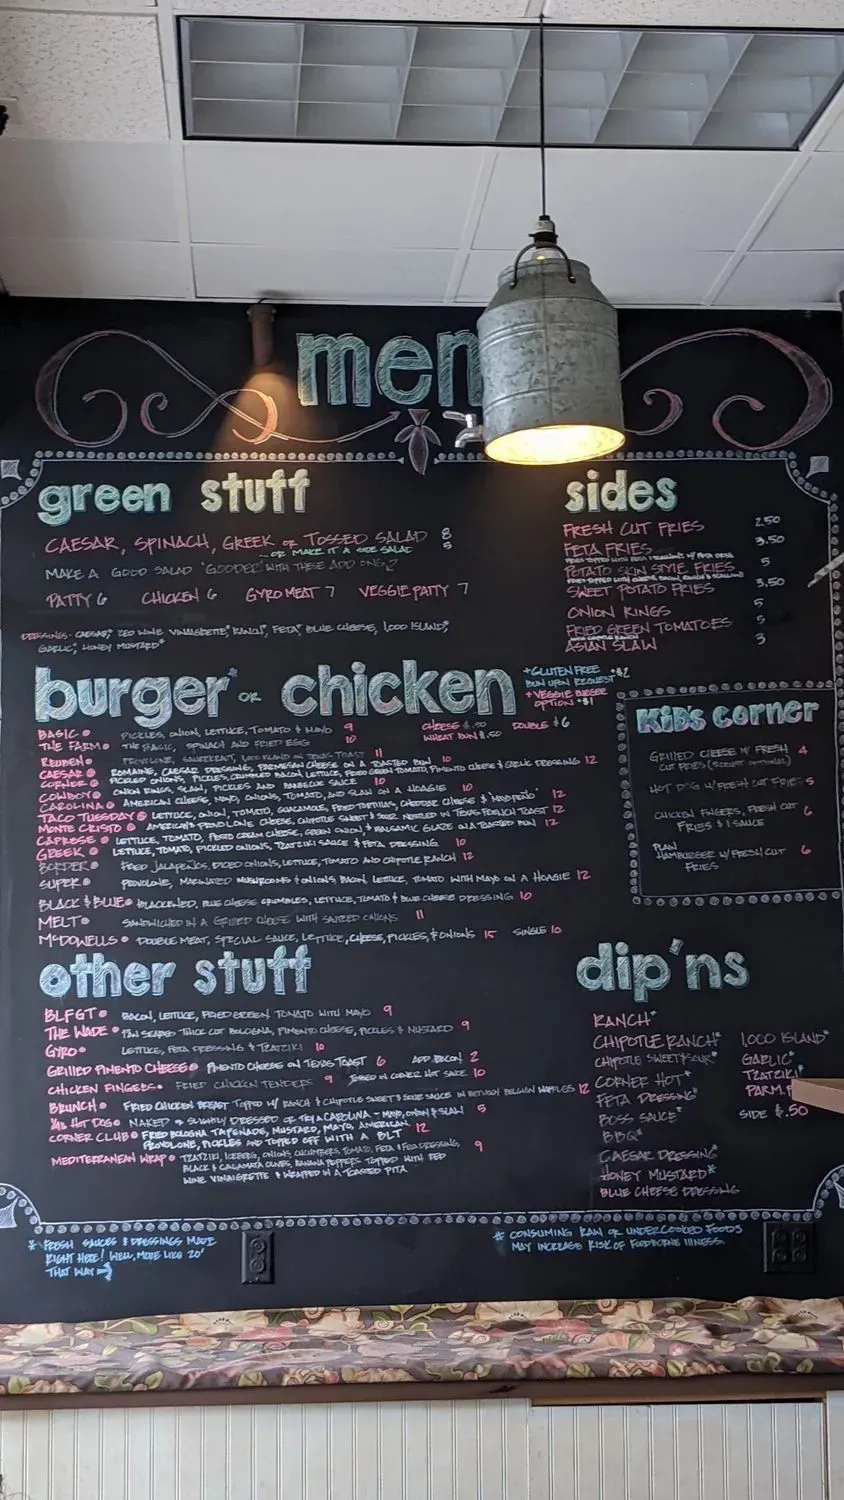 men
green stuff
CAESAR, SPINACH, GREEK OR TOSSED SALAD 8
...OR MAKE IT A SIDE SALAD 5
MAKE A GOOD SALAD "GOODER" WITH THESE ADD ONS
PATTY 6 CHICKEN 6 GYRO MEAT 7 VEGGIE PATTY 7
DRESSINGS- CAESAR,* RED WINE VINAIGRETTE,* RANCH,* FETA,* BLUE CHEESE, 1,000 ISLAND,*
GARLIC,* HONEY MUSTARD*
sides
FRESH CUT FRIES 2.50
FETA FRIES 3.50
POTATO SKIN STYLE FRIES 5
FRIES TOPPED WITH CHEESE, BACON, RANCH & SCALLIONS
SWEET POTATO FRIES 3.50
ONION RINGS 5
FRIED GREEN TOMATOES 5
WITH CHIPOTLE RANCH
ASIAN SLAW 3
burger* OR chicken
+GLUTEN FREE
BUN UPON REQUEST +$2
+VEGGIE BURGER
OPTION +$1
BASIC PICKLES, ONION, LETTUCE, TOMATO & MAYO 9 CHEESE $.50 DOUBLE $6
THE FARM THE BASIC, SPINACH AND FRIED EGG 10 WHEAT BUN $1.50
REUBEN PROVOLONE, SAUERKRAUT, 1,000 ISLAND ON TEXAS TOAST 11
CAESAR ROMAINE, CAESAR DRESSING, PARMESAN CHEESE ON A TOASTED BUN 10
CORNER PICKLED ONIONS, PICKLES, CRUMBLED BACON, LETTUCE, FRIED GREEN TOMATO, PIMENTO CHEESE & GARLIC DRESSING 12
COWBOY ONION RINGS, SLAW, PICKLES AND BARBECUE SAUCE 10
CAROLINA AMERICAN CHEESE, MAYO, ONIONS, TOMATO, AND SLAW ON A HOAGIE 10
TACO TUESDAY LETTUCE, ONION, TOMATO, GUACAMOLE, FRIED TORTILLAS, CHEDDAR CHEESE & "MAYPEÑO" 12
MONTE CRISTO AMERICAN & PROVOLONE CHEESE, CHIPOTLE SWEET & SOUR, NESTLED IN TEXAS FRENCH TOAST 12
CAPRESE LETTUCE, TOMATO, PESTO CREAM CHEESE, GREEN ONION & BALSAMIC GLAZE ON A TOASTED BUN 12
GREEK LETTUCE, TOMATO, PICKLED ONIONS, TZATZIKI SAUCE & FETA DRESSING 10
BORDER FRIED JALAPEÑOS, DICED ONIONS, LETTUCE, TOMATO AND CHIPOTLE RANCH 12
SUPER PROVOLONE, MARINATED MUSHROOMS & ONIONS, BACON, LETTUCE, TOMATO WITH MAYO ON A HOAGIE 12
BLACK & BLUE BLACKENED, BLUE CHEESE CRUMBLES, LETTUCE, TOMATO & BLUE CHEESE DRESSING 10
MELT SANDWICHED IN A GRILLED CHEESE WITH SAUTEED ONIONS 11
MCDOWELLS DOUBLE MEAT, SPECIAL SAUCE, LETTUCE, CHEESE, PICKLES, & ONIONS 15 SINGLE 10
KID'S CORNER
GRILLED CHEESE W/ FRESH 4
CUT FRIES
HOT DOG W/FRESH CUT FRIES 5
CHICKEN FINGERS, FRESH CUT 6
FRIES & 1 SAUCE
PLAIN
HAMBURGER W/FRESH CUT 6
FRIES
other stuff
BLFGT BACON, LETTUCE, FRIED GREEN TOMATO WITH MAYO 9
THE WADE PAN SEARED THICK CUT BOLOGNA, PIMENTO CHEESE, PICKLES & MUSTARD 9
GYRO LETTUCE, FETA DRESSING & TZATZIKI 10
GRILLED PIMENTO CHEESE PIMENTO CHEESE ON TEXAS TOAST 6 ADD BACON 2
CHICKEN FINGERS FRIED CHICKEN TENDERS 9 TOSSED IN CORNER HOT SAUCE 10
BRUNCH FRIED CHICKEN BREAST TOPPED W/ RANCH & CHIPOTLE SWEET & SOUR SAUCE IN BETWEEN BELGIAN WAFFLES 12
1/4 LB HOT DOG NAKED OR SLIGHTLY DRESSED OR TRY A CAROLINA - MAYO, ONION & SLAW 5
CORNER CLUB FRIED BOLOGNA TAPENADE, MUSTARD, MAYO, AMERICAN 12
PROVOLONE, PICKLES AND TOPPED OFF WITH A BLT
MEDITERRANEAN WRAP TZATZIKI, ICEBERG, ONIONS, CUCUMBERS, TOMATO, FETA & FETA DRESSING, 9
BLACK & CALAMATA OLIVES, BANANA PEPPERS TOPPED WITH RED
WINE VINAIGRETTE & WRAPPED IN A TOASTED PITA
dip'ns
RANCH*
CHIPOTLE RANCH* 1,000 ISLAND*
CHIPOTLE SWEET & SOUR* GARLIC*
CORNER HOT* TZATZIKI*
FETA DRESSING* PARM.
BOSS SAUCE* SIDE $.50
BBQ*
CAESAR DRESSING*
HONEY MUSTARD*
BLUE CHEESE DRESSING
* FRESH SAUCES & DRESSINGS MADE
RIGHT HERE! WELL, MORE LIKE 20'
THAT WAY →
* CONSUMING RAW OR UNDERCOOKED FOODS
MAY INCREASE RISK OF FOODBORNE ILLNESS.